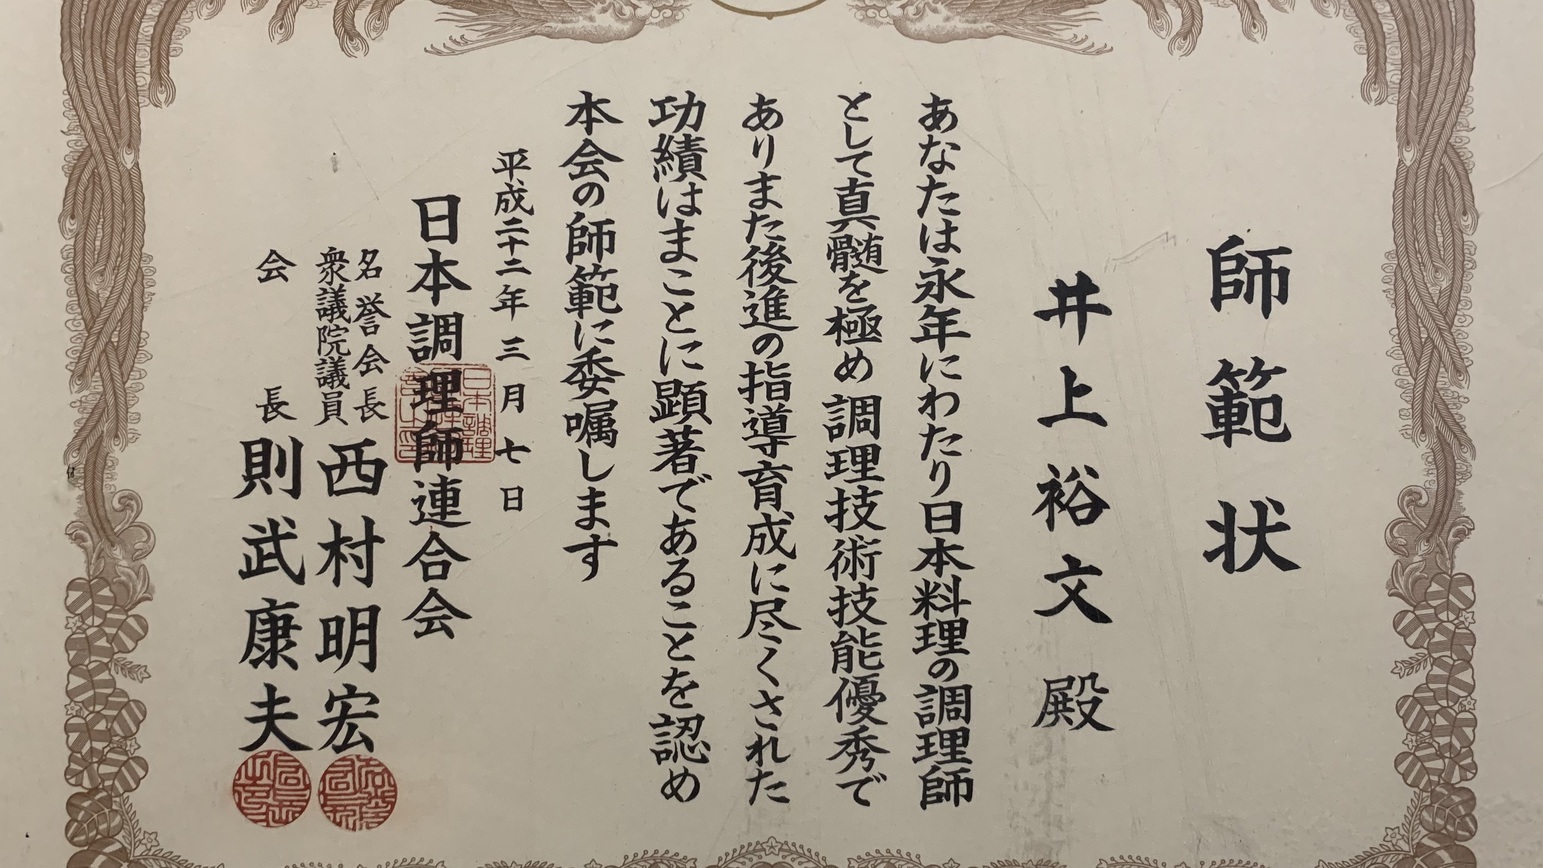 師範状
井上裕文殿
あなたは永年にわたり日本料理の調理師
として真髄を極め調理技術技能優秀で
ありまた後進の指導育成に尽くされた
功績はまことに顕著であることを認め
本会の師範に委嘱します
平成二十二年三月七日
日本調理師連合会
名誉会長
衆議院議員 西村明宏
会長 則武康夫